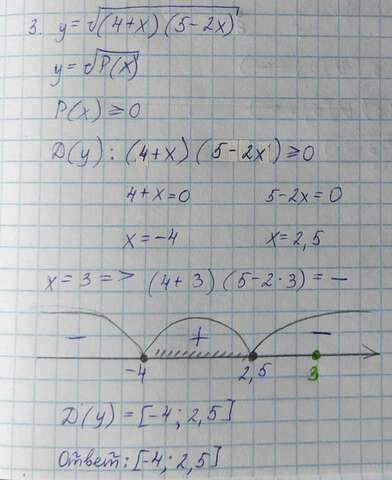 3. y = √(4+x)(5-2x)
y = √P(x)
P(x) ≥ 0
D(y): (4+x)(5-2x) ≥ 0
4+x=0 5-2x=0
x=-4 x=2,5
x=3 => (4+3)(5-2·3) = -
- + -
-4 2,5 3
D(y) = [-4; 2,5]
Ответ: [-4; 2,5]